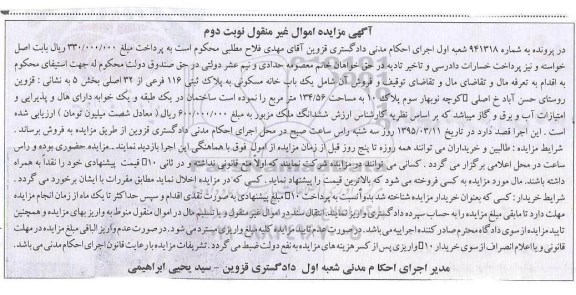 آگهی مزایده اموال غیر منقول نوبت دوم
در پرونده به شماره ۹۴۱۳۱۸ شعبه اول اجرای احکام مدنی دادگستری قزوین آقای مهدی فلاح مطلبی محکوم است به پرداخت مبلغ ۳۳۰/۰۰۰/۰۰۰ ریال بابت اصل
خواسته و نیز پرداخت خسارات دادرسی و تاخیر تادیه در حق خواهان خانم معصومه حدادی و نیم عشر دولتی در حق صندوق دولت محکوم له جهت استیفای محکوم
به اقدام به تعرفه مال و تقاضای مال و تقاضای توقیف و فروش آن شامل یک باب خانه مسکونی به پلاک ثبتی ۱۱۶ فرعی از ۳۲ اصلی بخش ۵ به نشانی : قزوین
روستای حسن آباد خ اصلی کوچه نوبهار سوم پلاک ۱۰ به مساحت ۱۳۴/۵۶ متر مربع را نموده است ساختمان در یک طبقه و یک خوابه دارای هال و پذیرایی و
امتیازات آب و برق و گاز میباشد که بر اساس نظریه کارشناس ارزش ششدانگ ملک مزبور به مبلغ ۶۰۰/۰۰۰/۰۰۰ ریال ( معادل شصت میلیون تومان ) ارزیابی شده
است . این اجرا قصد دارد در تاریخ ۱۳۹۵/۰۳/۱۱ روز سه شنبه راس ساعت صبح در محل اجرای احکام مدنی دادگستری قزوین از طریق مزایده به فروش برساند .
شرایط مزایده : طالبین و خریداران می توانند همه روزه تا پنج روز قبل از زمان مزایده از اموال فوق با هماهنگی این اجرا بازدید نمایند . مزایده حضوری بوده و راس
ساعت در محل اعلامی برگزار می گردد . کسانی می توانند در مزایده شرکت نمایند که اولا منع قانونی نداشته و در ثانی ۱۰ قیمت پیشنهادی خود را نقدا به همراه
داشته باشند. مال مورد مزایده به کسی فروخته می شود که بالاترین قیمت را پیشنهاد نماید . کسی که در مزایده اخلال نماید مطابق مقررات با ایشان برخورد می گردد .
شرایط خریدار : کسی که بعنوان خریدار مزایده شناخته شد بدوا نسبت به پرداخت ۱۰ مبلغ پیشنهادی به صورت نقدی اقدام و سپس حداکثر تا یک ماه از زمان انجام مزایده
مهلت دارد تا مابقی مبلغ مزایده را به حساب سپرده دادگستری واریز نمایند. انتقال سند در اموال غیر منقول و یا تسلیم مال در اموال منقول منوط به واریز بهای مزایده و همچنین
تایید مزایده از سوی دادگاه محترم صادر کننده اجراییه می باشد . در صورت عدم تایید مزایده کل مبلغ واریزی مسترد می شود . در صورت عدم واریز الباقی مبلغ مزایده در مهلت
قانونی و یا اعلام انصراف از سوی خریدار ۱۰ واریزی پس از کسر هزینه های مزایده به نفع دولت ضبط می گردد . تشریفات مزایده با رعایت قانون اجرای احکام مدنی می باشد.
مدیر اجرای احکام مدنی شعبه اول دادگستری قزوین – سید یحیی ابراهیمی